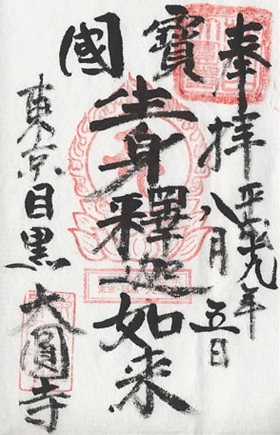 奉拝
平成九年
八月五日
國寶
生身釋迦如来
東京目黒
大圓寺